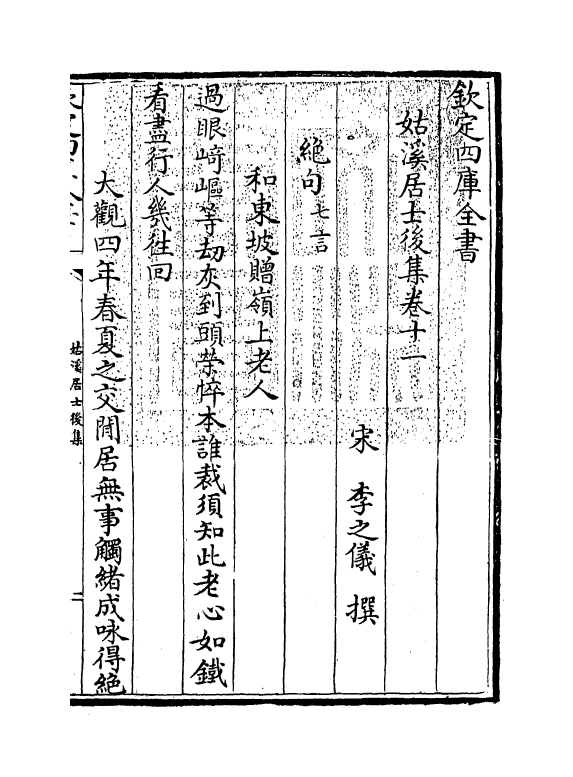 欽定四庫全書
姑溪居士後集卷十二
宋 李之儀 撰
絶句七言
和東坡贈嶺上老人
過眼﨑嶇等刼灰到頭榮悴本誰裁須知此老心如鐵
看盡行人幾徃回
大觀四年春夏之交閒居無事觸緒成咏得絶
姑溪居士後集